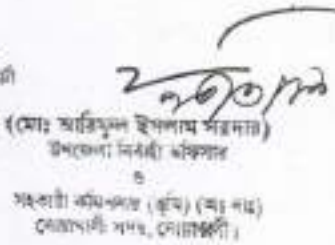 (মোঃ আরিফুল ইসলাম সরদার)
উপজেলা নির্বাহী অফিসার
ও
সহকারী কমিশনার (ভূমি) (অঃ দাঃ)
নোয়াখালী সদর, নোয়াখালী।